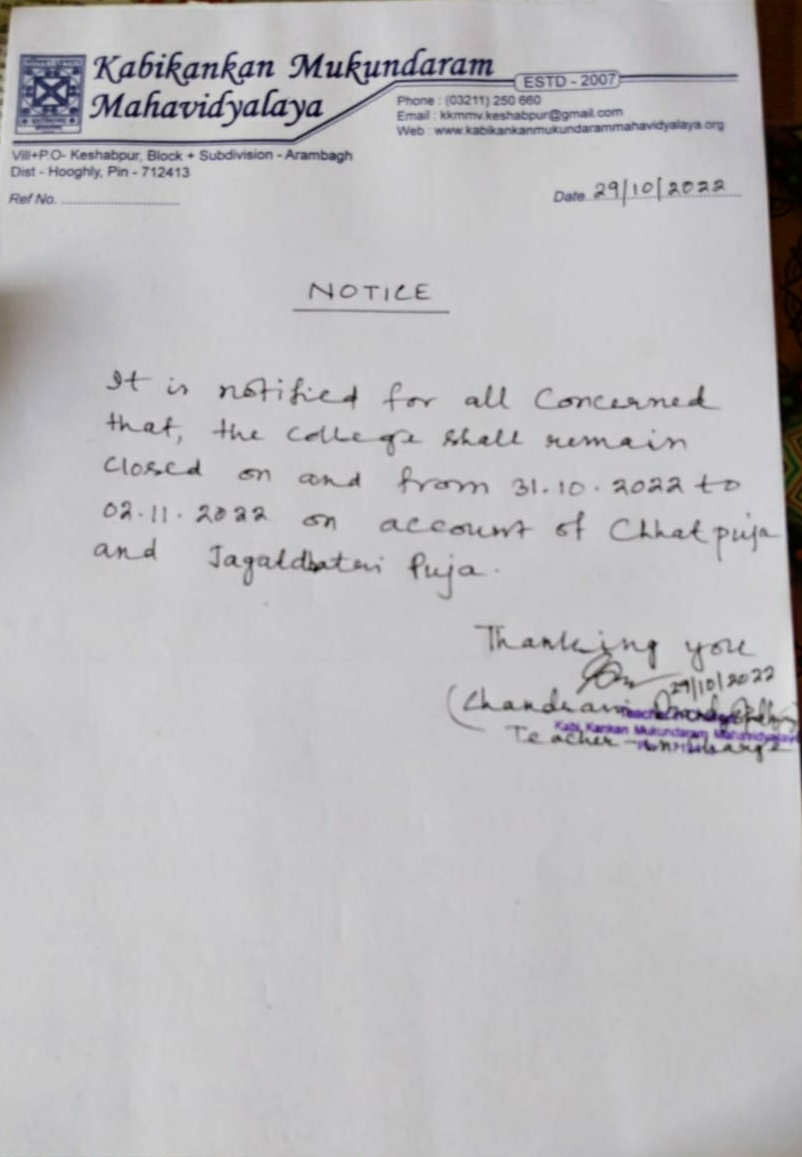 Kabikankan Mukundaram
Mahavidyalaya
ESTD - 2007
Phone : (03211) 250 660
Email : kkmmv.keshabpur@gmail.com
Web : www.kabikankanmukundarammahavidyalaya.org
Vill+P.O- Keshabpur, Block + Subdivision - Arambagh
Dist - Hooghly, Pin - 712413
Ref No.
Date 29/10/2022
NOTICE
It is notified for all Concerned
that, the College shall remain
Closed on and from 31.10.2022 to
02.11.2022 on account of Chhat puja
and Jagatdhatri Puja.
Thanking you
29/10/2022
(Chandrani
Teacher-in-Charge
Kabi Kankan Mukundaram Mahavidyalaya
Teacher-in-Charge